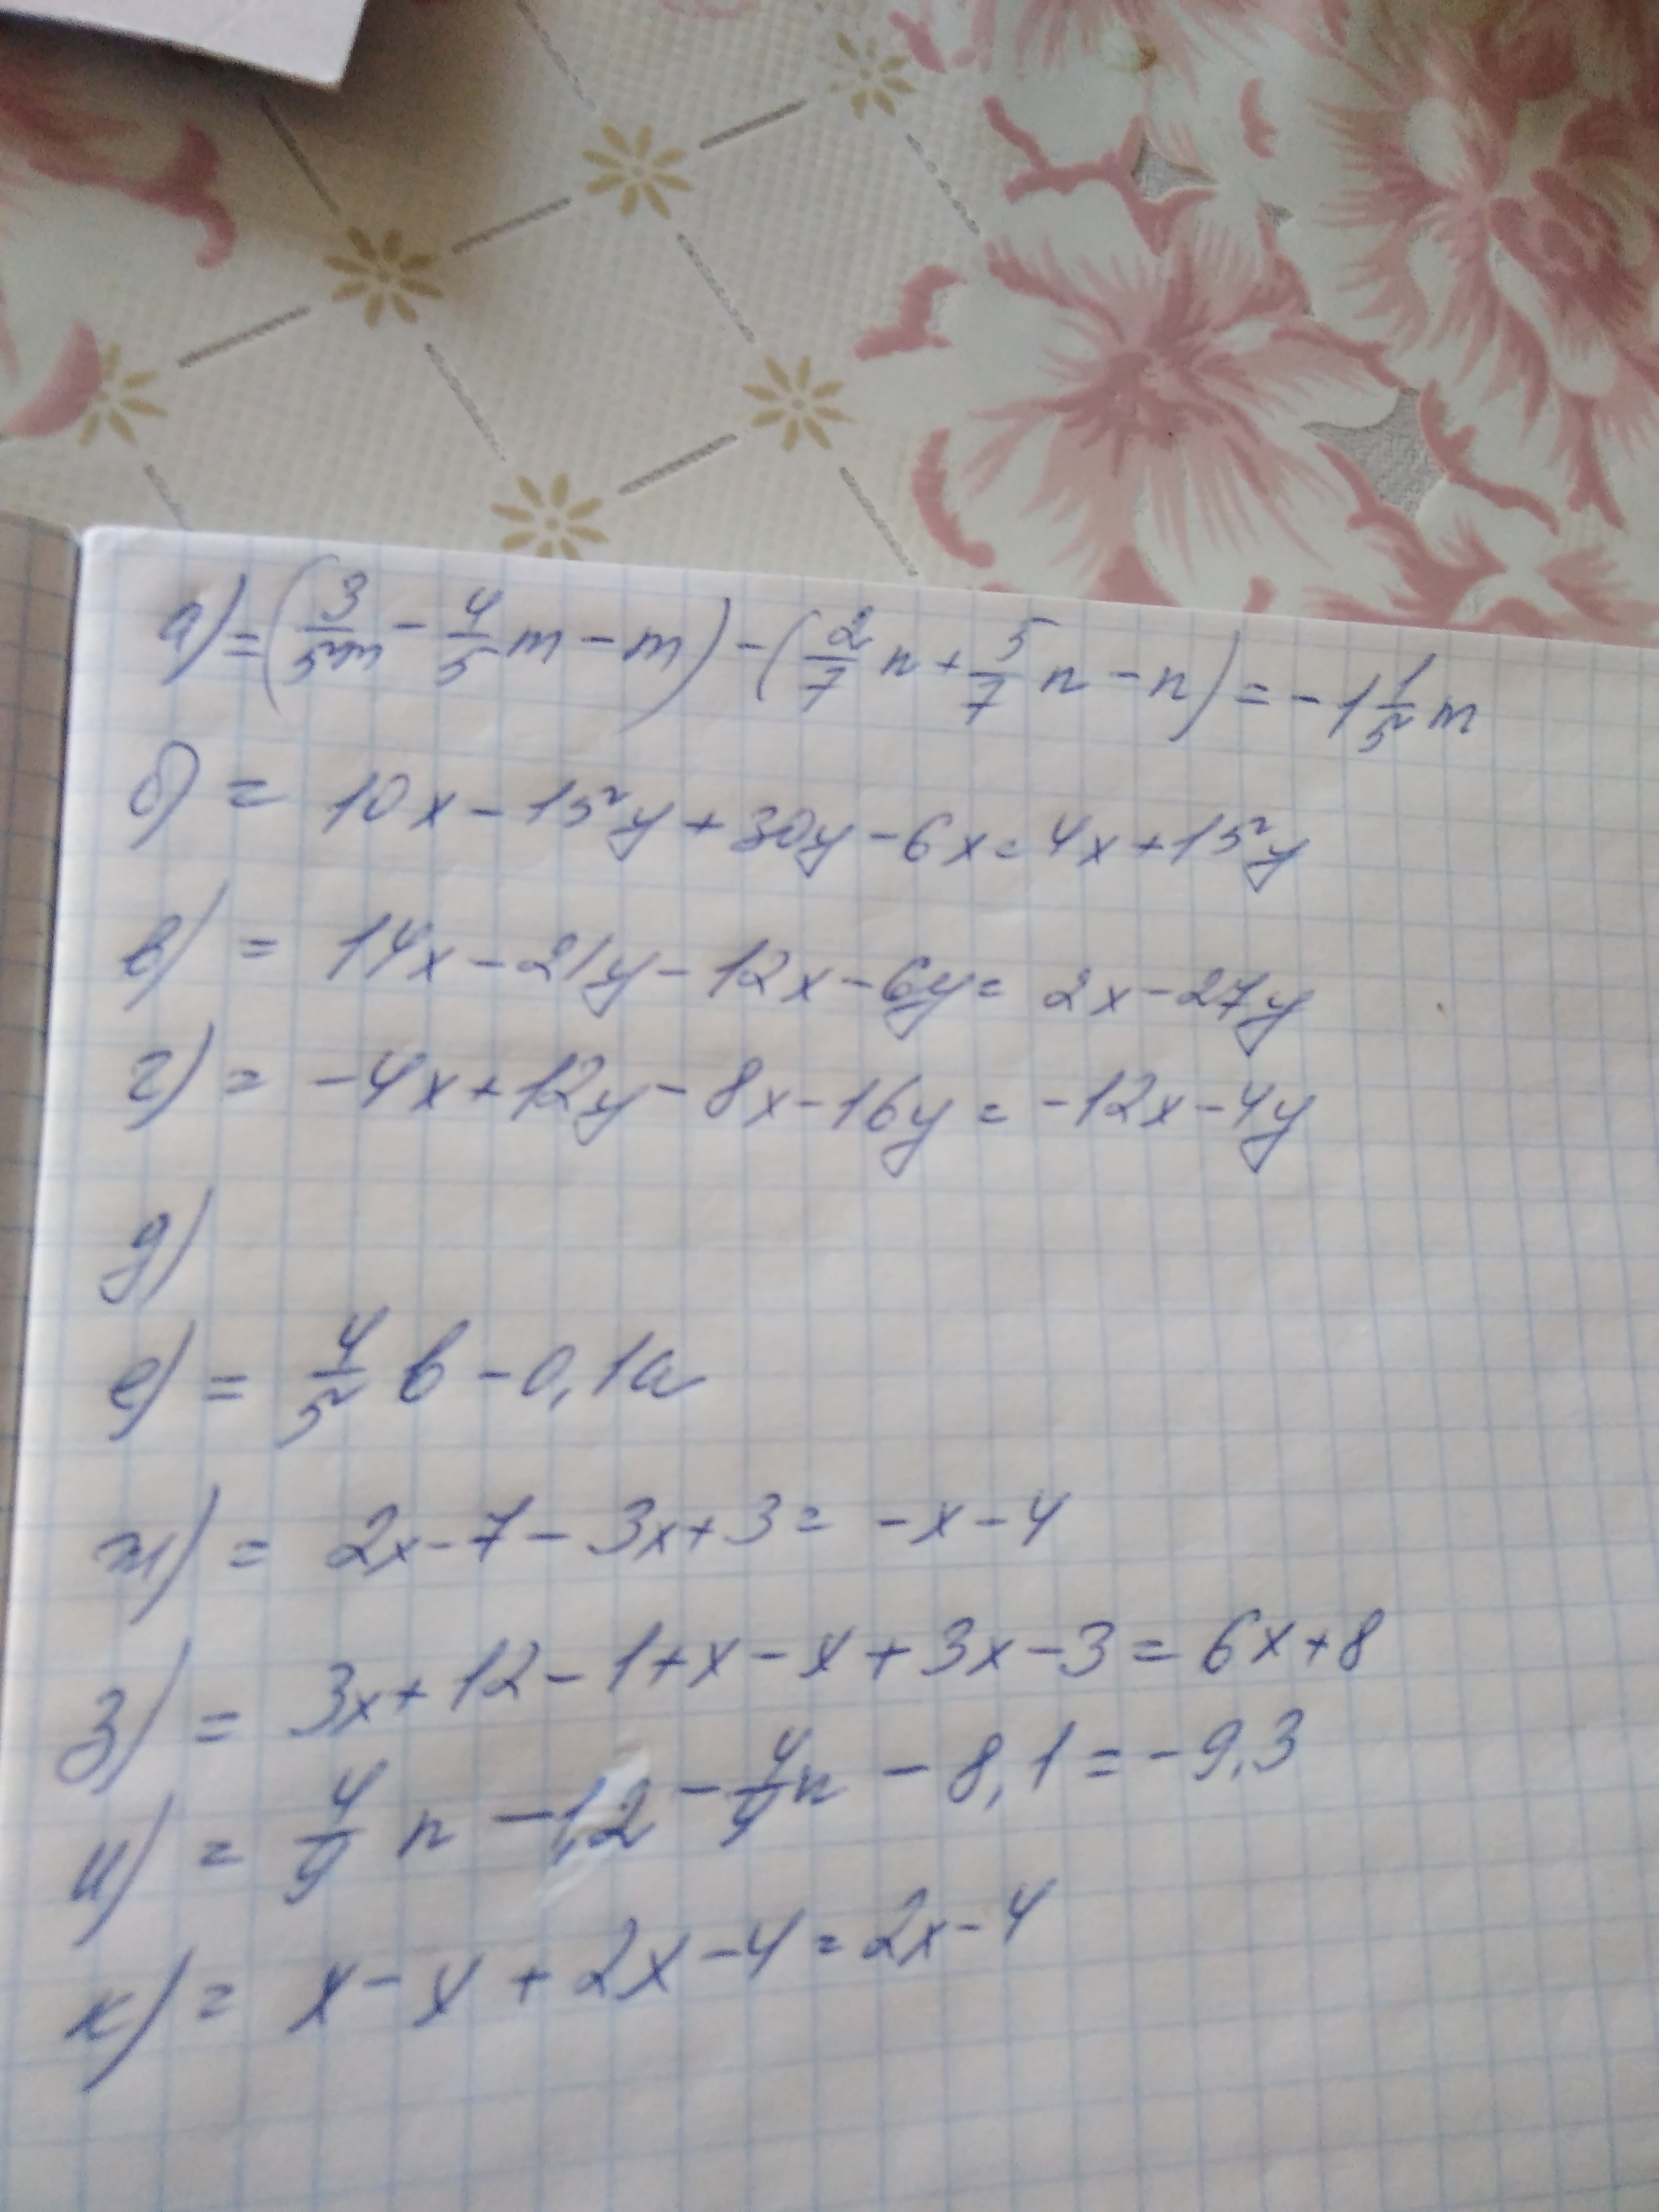 а) = (3/5m - 4/5 m - m) - (2/7 n + 5/7 n - n) = -1 1/5 m
б) = 10x - 15y + 30y - 6x = 4x + 15y
в) = 14x - 21y - 12x - 6y = 2x - 27y
г) = -4x + 12y - 8x - 16y = -12x - 4y
д)
е) = 4/5 в - 0,1а
ж) = 2x - 7 - 3x + 3 = -x - 4
з) = 3x + 12 - 1 + x - x + 3x - 3 = 6x + 8
и) = 4/9 n - 1,2 - 4/9 n - 8,1 = -9,3
к) = x - x + 2x - 4 = 2x - 4